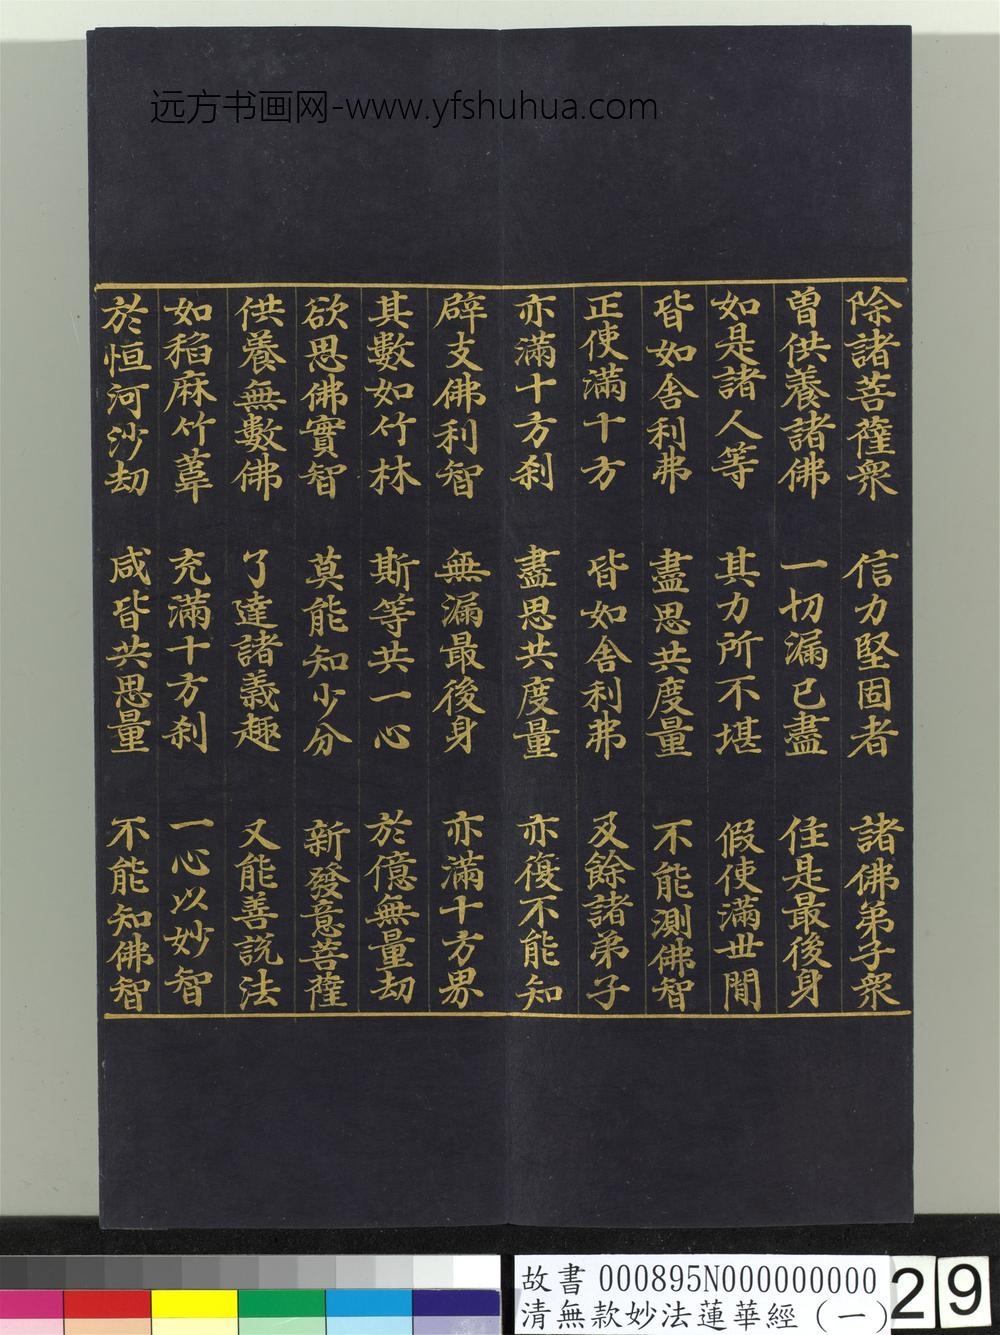 远方书画网-www.yfshuhua.com
除諸菩薩衆 信力堅固者 諸佛弟子衆
曽供養諸佛 一切漏已盡 住是最後身
如是諸人等 其力所不堪 假使滿世間
皆如舍利弗 盡思共度量 不能測佛智
正使滿十方 皆如舍利弗 及餘諸弟子
亦滿十方刹 盡思共度量 亦復不能知
辟支佛利智 無漏最後身 亦滿十方界
其數如竹林 斯等共一心 於億無量劫
欲思佛實智 莫能知少分 新發意菩薩
供養無數佛 了達諸義趣 又能善說法
如稻麻竹葦 充滿十方刹 一心以妙智
於恒河沙劫 咸皆共思量 不能知佛智
故書 000895N000000000
清無款妙法蓮華經（一）
29